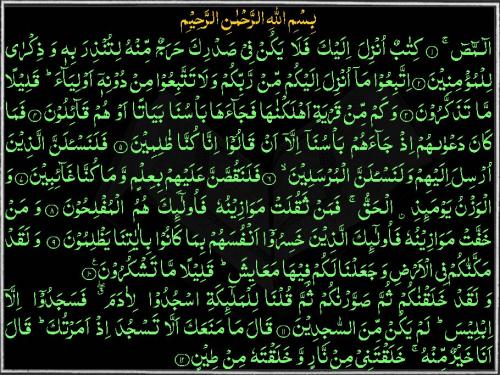 بِسْمِ اللّٰهِ الرَّحْمٰنِ الرَّحِيْمِ
الٓمّٓصٓ ۚ﴿۱﴾ كِتٰبٌ اُنْزِلَ اِلَيْكَ فَلَا يَكُنْ فِىْ صَدْرِكَ حَرَجٌ مِّنْهُ لِتُنْذِرَ بِهٖ وَ ذِكْرٰى
لِلْمُؤْمِنِيْنَ ﴿۲﴾ اِتَّبِعُوْا مَاۤ اُنْزِلَ اِلَيْكُمْ مِّنْ رَّبِّكُمْ وَ لَا تَتَّبِعُوْا مِنْ دُوْنِهٖۤ اَوْلِيَآءَ ؕ قَلِيْلًا
مَّا تَذَكَّرُوْنَ ﴿۳﴾ وَ كَمْ مِّنْ قَرْيَةٍ اَهْلَكْنٰهَا فَجَآءَهَا بَاْسُنَا بَيَاتًا اَوْ هُمْ قَآئِلُوْنَ ﴿۴﴾ فَمَا
كَانَ دَعْوٰىهُمْ اِذْ جَآءَهُمْ بَاْسُنَاۤ اِلَّاۤ اَنْ قَالُوْۤا اِنَّا كُنَّا ظٰلِمِيْنَ ﴿۵﴾ فَلَنَسْـَٔلَنَّ الَّذِيْنَ
اُرْسِلَ اِلَيْهِمْ وَ لَنَسْـَٔلَنَّ الْمُرْسَلِيْنَ ۙ﴿۶﴾ فَلَنَقُصَّنَّ عَلَيْهِمْ بِعِلْمٍ وَّ مَا كُنَّا غَآئِبِيْنَ ﴿۷﴾ وَ
الْوَزْنُ يَوْمَئِذِ ۟الْحَقُّ ۚ فَمَنْ ثَقُلَتْ مَوَازِيْنُهٗ فَاُولٰٓئِكَ هُمُ الْمُفْلِحُوْنَ ﴿۸﴾ وَ مَنْ
خَفَّتْ مَوَازِيْنُهٗ فَاُولٰٓئِكَ الَّذِيْنَ خَسِرُوْۤا اَنْفُسَهُمْ بِمَا كَانُوْا بِاٰيٰتِنَا يَظْلِمُوْنَ ﴿۹﴾ وَ لَقَدْ
مَكَّنّٰكُمْ فِى الْاَرْضِ وَ جَعَلْنَا لَكُمْ فِيْهَا مَعَايِشَ ؕ قَلِيْلًا مَّا تَشْكُرُوْنَ ﴿۱۰﴾
وَ لَقَدْ خَلَقْنٰكُمْ ثُمَّ صَوَّرْنٰكُمْ ثُمَّ قُلْنَا لِلْمَلٰٓئِكَةِ اسْجُدُوْا لِاٰدَمَ ۖ فَسَجَدُوْۤا اِلَّاۤ
اِبْلِيْسَ ؕ لَمْ يَكُنْ مِّنَ السّٰجِدِيْنَ ﴿۱۱﴾ قَالَ مَا مَنَعَكَ اَلَّا تَسْجُدَ اِذْ اَمَرْتُكَ ؕ قَالَ
اَنَا خَيْرٌ مِّنْهُ ۚ خَلَقْتَنِىْ مِنْ نَّارٍ وَّ خَلَقْتَهٗ مِنْ طِيْنٍ ﴿۱۲﴾